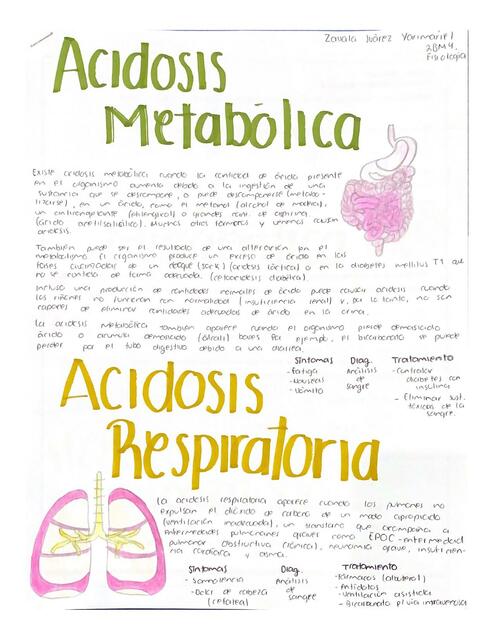 Zavala Juárez Yarimariel
2BM4.
Fisiología
Acidosis
Metabólica
Existe acidosis metabólica cuando la cantidad de ácido presente
en el organismo aumenta debido a la ingestión de una
sustancia que se descompone, o puede descomponerse (metabo-
lizarse), en un ácido, como el metanol (alcohol de madera),
un anticongelante (etilenglicol) o grandes cant. de aspirina
(ácido acetilsalicílico). Muchos otros fármacos y venenos causan
acidosis.
También puede ser el resultado de una alteración en el
metabolismo. El organismo produce un exceso de ácido en las
fases avanzadas de un choque (shock) (acidosis láctica) o en la diabetes mellitus T1 que
no se controla de forma adecuada. (cetoacidosis diabética)
Incluso una producción de cantidades normales de ácido puede causar acidosis cuando
los riñones no funcionan con normalidad (insuficiencia renal) y, por lo tanto, no son
capaces de eliminar cantidades adecuadas de ácido en la orina.
La acidosis metabólica también aparece cuando el organismo pierde demasiado
ácido o acumula demasiado (álcali) bases Por ejemplo, el bicarbonato se puede
perder por el tubo digestivo debido a una diarrea.
Síntomas Diag. Tratamiento
- Fatiga Análisis - Controlar
- Náuseas de diabetes con
- Vómito sangre insulina
- Eliminar sust.
tóxicas de la
sangre.
Acidosis
Respiratoria
La acidosis respiratoria aparece cuando los pulmones no
expulsan el dióxido de carbono de un modo apropiado
(ventilación inadecuada), un trastorno que acompaña a
enfermedades pulmonares graves como EPOC - enfermedad
pulmonar obstructiva (crónica), neumonía grave, insuficien-
cia cardíaca y asma.
Síntomas Diag. Tratamiento
- Somnolencia Análisis - Fármacos (albuterol)
- Dolor de cabeza de - Antídotos
(cefalea) sangre - Ventilación asistida
- Bicarbonato p/ vía intravenosa